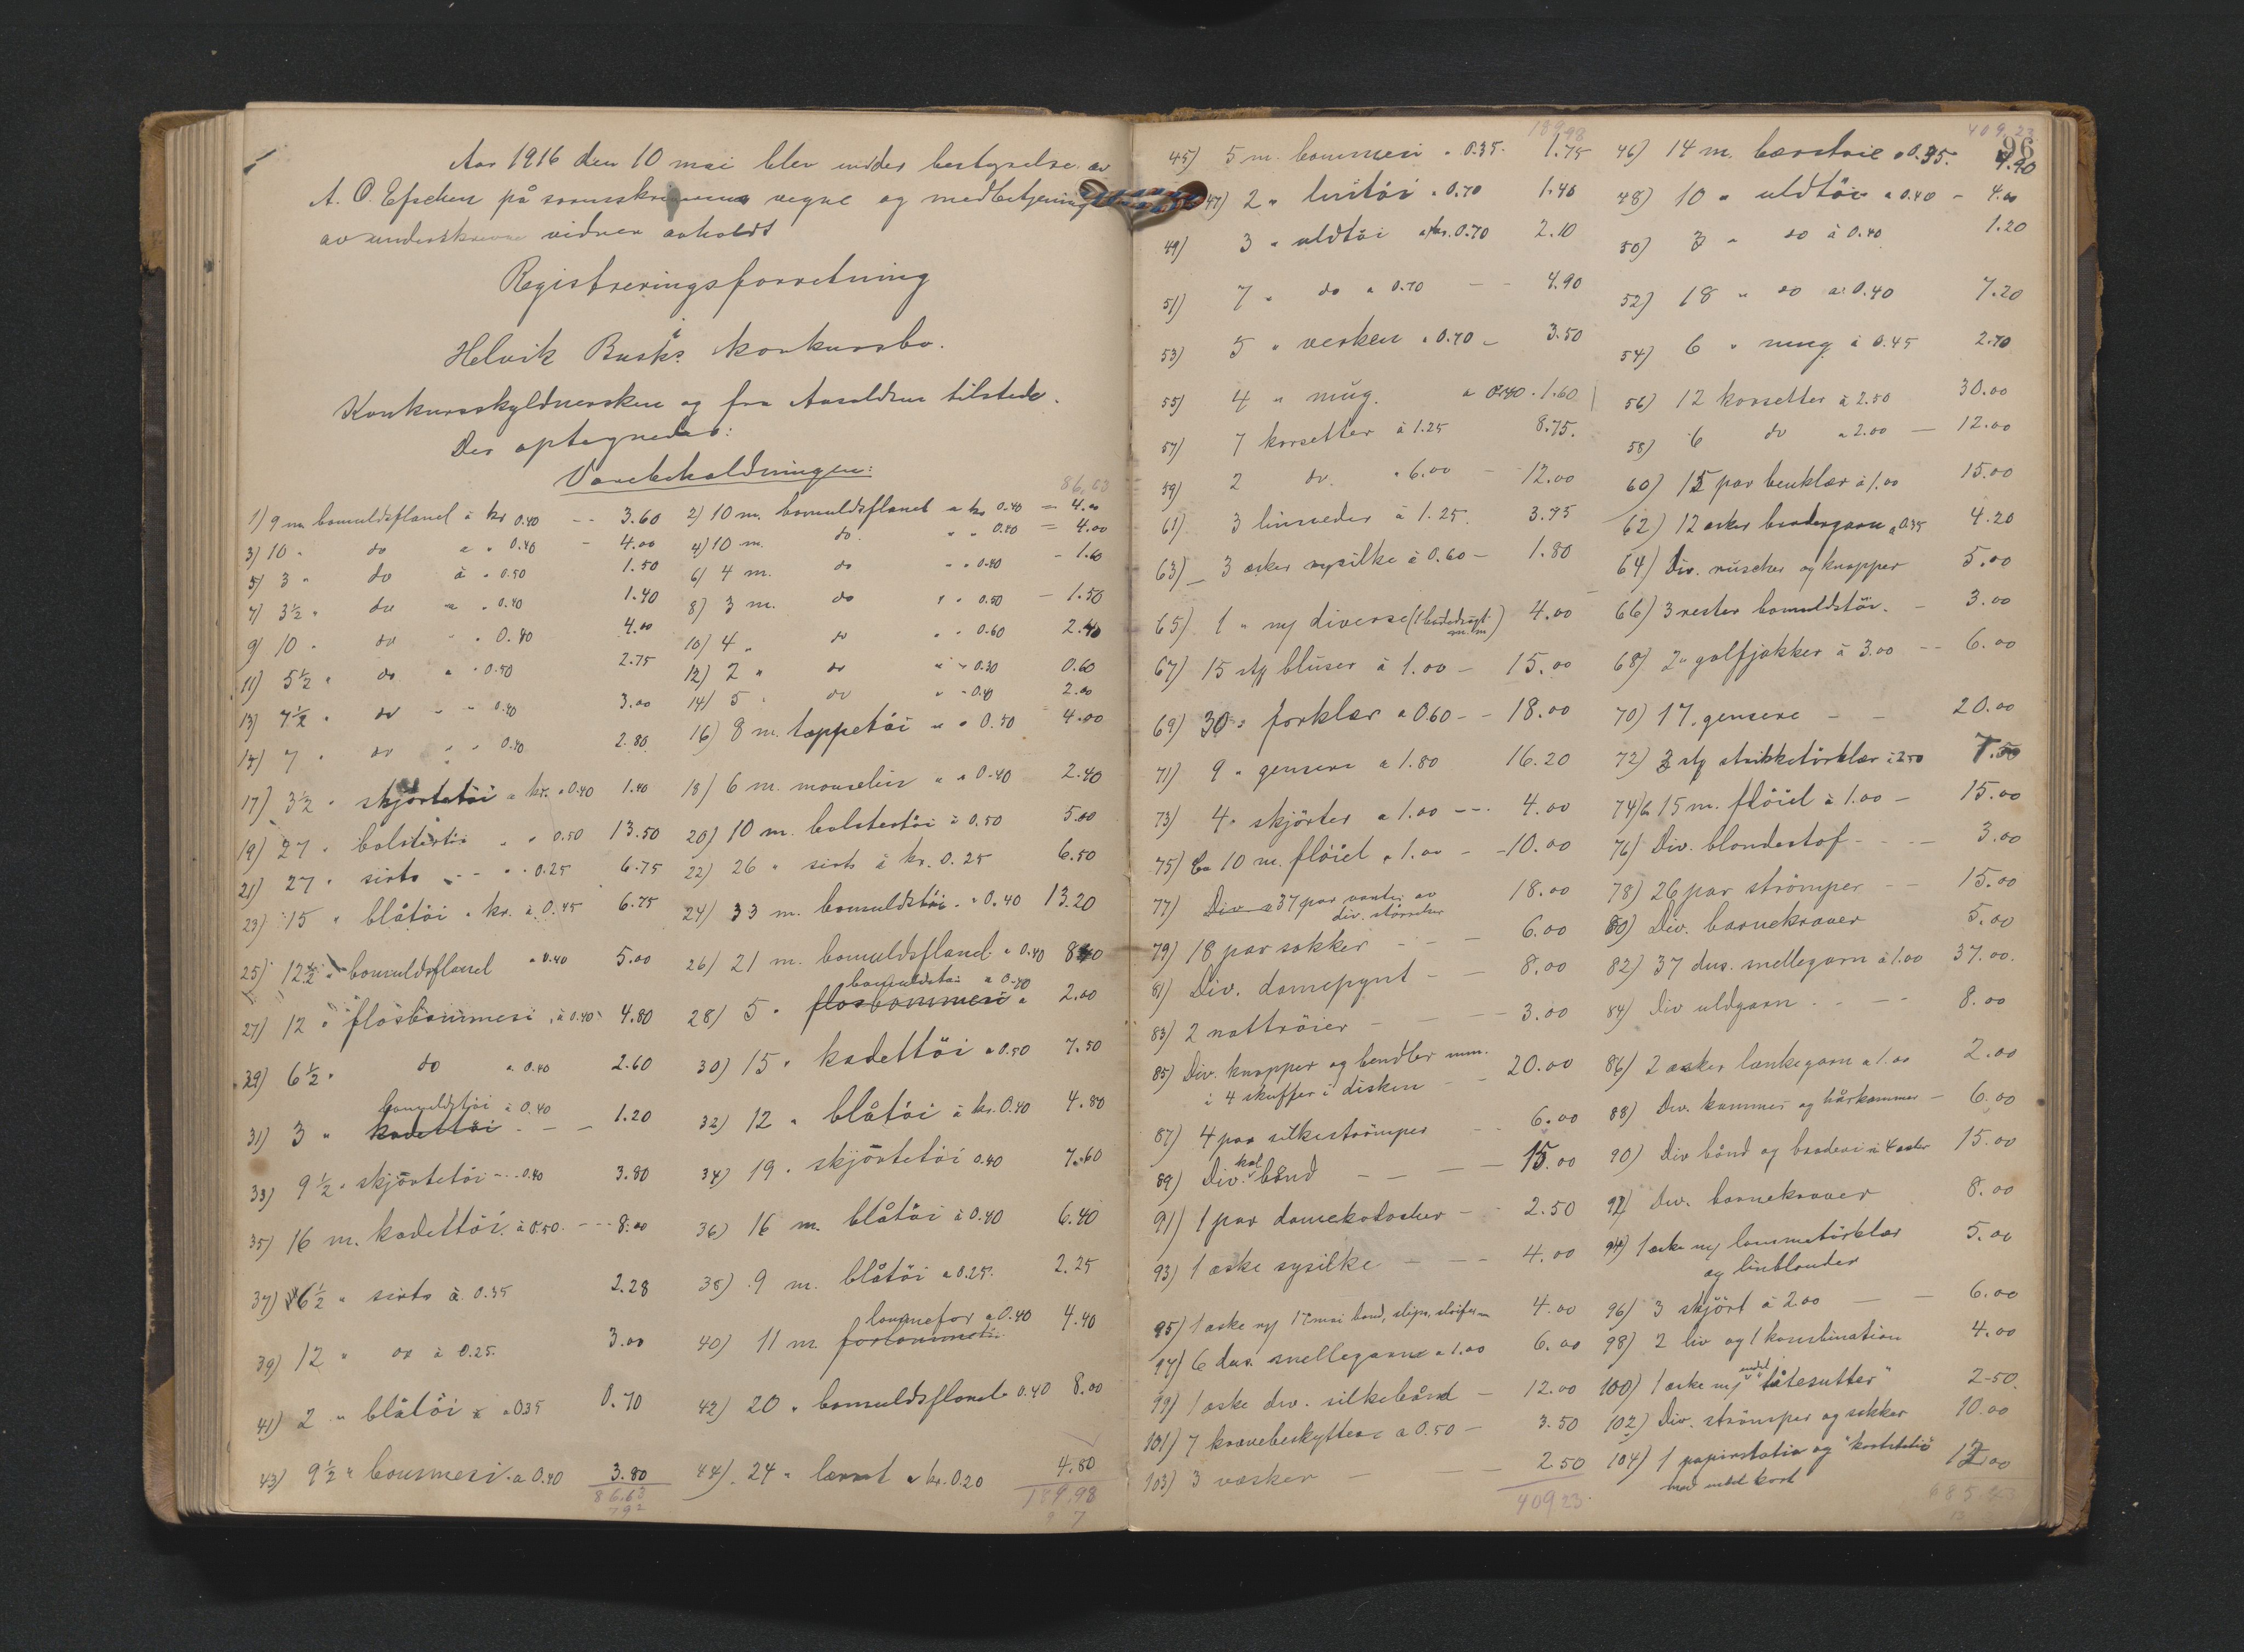 Aar 1916 den 10 mai blev under bestyrelse av
A. O. på sorenskriverens vegne og medbetjening
av underskrevne vidner avholdt
Registreringsforretning
i
Helvik Busks konkursbo.
Konkursskyldnersken og fra Aasaldsen tilstede.
Der optegnedes:
Varebeholdningen:
86,63
1) 9 m bomuldsflanel à kr 0.40 -- 3.60 2) 10 m. bomuldsflanel a kr 0.40 = 4.00
3) 10 " do a " 0.40 - 4.00 4) 10 m. do " " 0.40 = 4.00
5) 3 " do à " 0.50 1.50 6) 4 m. do " " 0.40 - 1.60
7) 3½ " do a " 0.40 1.40 8) 3 m. do " " 0.50 - 1.50
9) 10 " do " " 0.40 4.00 10) 4 " do " " 0.60 2.40
11) 5½ " do a " 0.50 2.75 12) 2 " do " " 0.30 0.60
13) 7½ " do " " 0.40 3.00 14) 5 " do " " 0.40 2.00
15) 7 " do " " 0.40 2.80 16) 8 m. tæppetöi " " 0.50 4.00
17) 3½ " skjörtetöi a kr. " 0.40 1.40 18) 6 m. mouselin " a 0.40 2.40
19) 27 " bolstertöi " " 0.50 13.50 20) 10 m. bolstertöi à 0.50 5.00
21) 27 " sirts -- " 0.25 6.75 22) 26 " sirts à kr. 0.25 6.50
23) 15 " blåtöi " kr. à 0.45 6.75 24) 33 m. bomuldstöi - " 0.40 13.20
25) 12½ " bomuldsflanel " 0.40 5.00 26) 21 m. bomuldsflanel " 0.40 8.40
27) 12 " flosbommesi " à 0.40 4.80 28) 5 " flosbommesi bomuldstöi a 0.40 2.00
29) 6½ " do a 0.40 2.60 30) 15 " kadettöi a 0.50 7.50
31) 3 " kadettöi bomuldstöi à 0.40 -- 1.20 32) 12 " blåtöi à kr. 0.40 4.80
33) 9½ " skjörtetöi -- 0.40 3.80 34) 19 " skjörtetöi 0.40 7.60
35) 16 m. kadettöi à 0.50 --- 8.00 36) 16 m. blåtöi à 0.40 6.40
37) 6½ " sirts à 0.35 2.28 38) 9 m. blåtöi a 0.25 2.25
39) 12 " do à 0.25. 3.00 40) 11 m. lommefor a 0.40 4.40
41) 2 " blåtöi à 0.35 0.70 42) 20 " bomuldsflanel 0.40 8.00
43) 9½ " bommesi a 0.40 3.80 44) 24 " lærret a kr. 0.20 4.80
86.63 189.98
189.98 409,23
96
45) 5 m. bommesi " 0.35. 1.75 46) 14 m. bærstrie a 0.35. 4.90
47) 2 " lintöi " 0.70 1.40 48) 10 " uldtöi a 0.40 - 4.00
49) 3 " uldtöi a kr. 0.70 2.10 50) 3 " do à 0.40 1.20
51) 7 " do a 0.70 -- 4.90 52) 18 " do a 0.40 7.20
53) 5 " verken " 0.70 - 3.50 54) 6 " mug à 0.45 2.70
55) 4 " mug. a 0.40 . 1.60 56) 12 korsetter à 2.50 30.00
57) 7 korsetter à 1.25 8.75. 58) 6 do a 2.00 - 12.00
59) 2 do. " 6.00 - 12.00 60) 15 par benklær à 1.00 15.00
61) 3 linneder à 1.25. 3.75 62) 12 æsker brodergarn a 0.35 4.20
63) 3 æsker sysilke à 0.60 - 1.80 64) Div. rüscher og knapper 5.00
65) 1 " m/ diverse (1 badedragt m.m) 4.00 66) 3 rester bomuldstöi. - 3.00
67) 15 stk bluser à 1.00 - 15.00 68) 2 " golfjakker à 3.00 -- 6.00
69) 30 " forklær a 0.60 -- 18.00 70) 17. gensere -- 20.00
71) 9 " gensere a 1.80 16.20 72) 3 stk strikketörklær à 2.50 7.50
73) 4 " skjörter a 1.00 --- 4.00 74) Ca 15 m. flöiel à 1.00 - 15.00
75) Ca 10 m. flöiel a 1.00 -- 10.00 76) Div. blondestof --- 3.00
77) Div 37 par vanter av div. störrelser 18.00 78) 26 par strömper -- 15.00
79) 18 par sokker --- 6.00 80) Div. barnekraver 5.00
81) Div. damepynt -- 8.00 82) 37 dus. snellegarn à 1.00 37.00.
83) 2 nattröier --- 3.00 84) Div uldgarn --- 8.00
85) Div. knapper og bendler m.m. i 4 skuffer i disken -- 20.00 86) 2 æsker lænkegarn a 1.00 2.00
87) 4 par silkeströmper -- 6.00 88) Div. kammer og hårkammer - 6.00
89) Div. bånd --- 15.00 90) Div bånd og broderi i 4 æsker 15.00
91) 1 par damekalosker -- 2.50 92) Div. barnekraver 8.00
93) 1 æske sysilke --- 4.00 94) 1 æske m/ lommetörklær og linblonder 5.00
95) 1 æske m/ 17 mai bånd, slips, 4.00 96) 3 skjört à 2.00 -- 6.00
97) 6 dus. snellegarn a 1.00 6.00 98) 2 liv og 1 kombination 4.00
99) 1 æske div. silkebånd - 12.00 100) 1 æske m/ endel "tåtesutter" 2.50.
101) 7 kravebeskyttere a 0.50 - 3.50 102) Div. strömper og sokker 10.00
103) 3 væsker --- 2.50 104) 1 papirstativ og kortstativ med endel kort 12.00
409 23. 685.